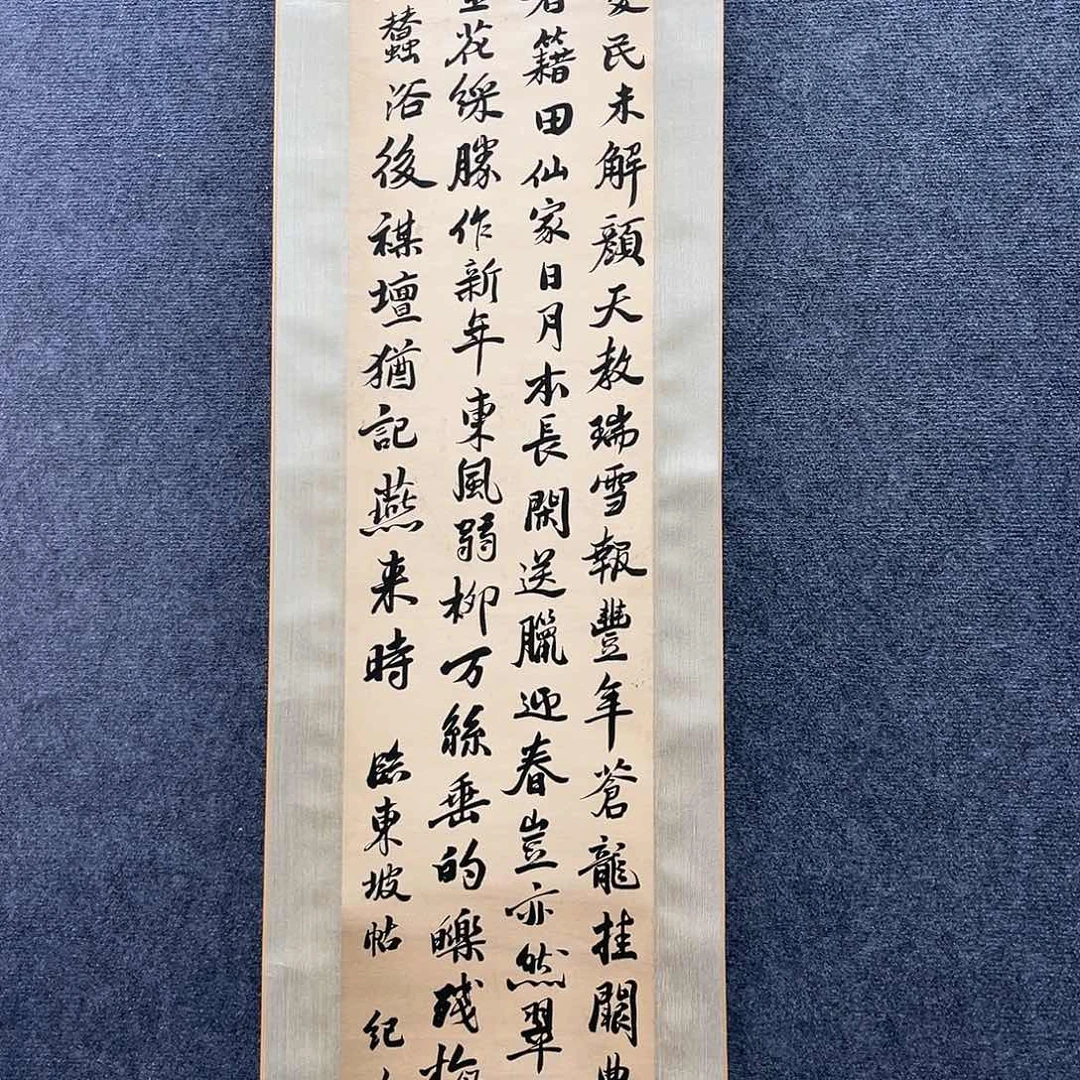 民未解顏天教瑞雪報豐年蒼龍挂闕
籍田仙家日月本長閑送臘迎春豈亦然翠
花綵勝作新年東風弱柳万絲垂的皪殘梅
蠶浴後禖壇猶記燕来時 臨東坡帖 紀